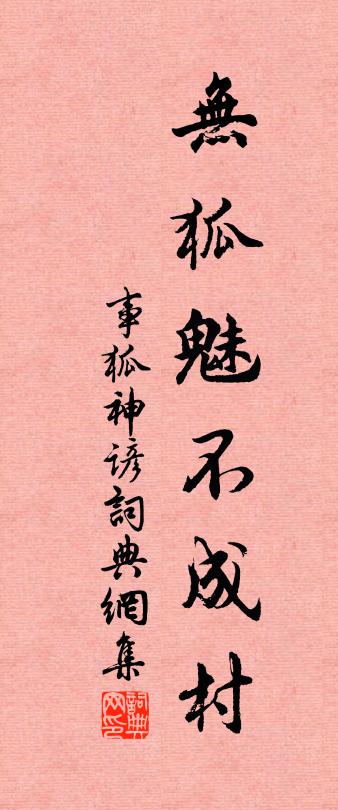 無狐魅不成村
事狐神諺詞典網集
詞典网印